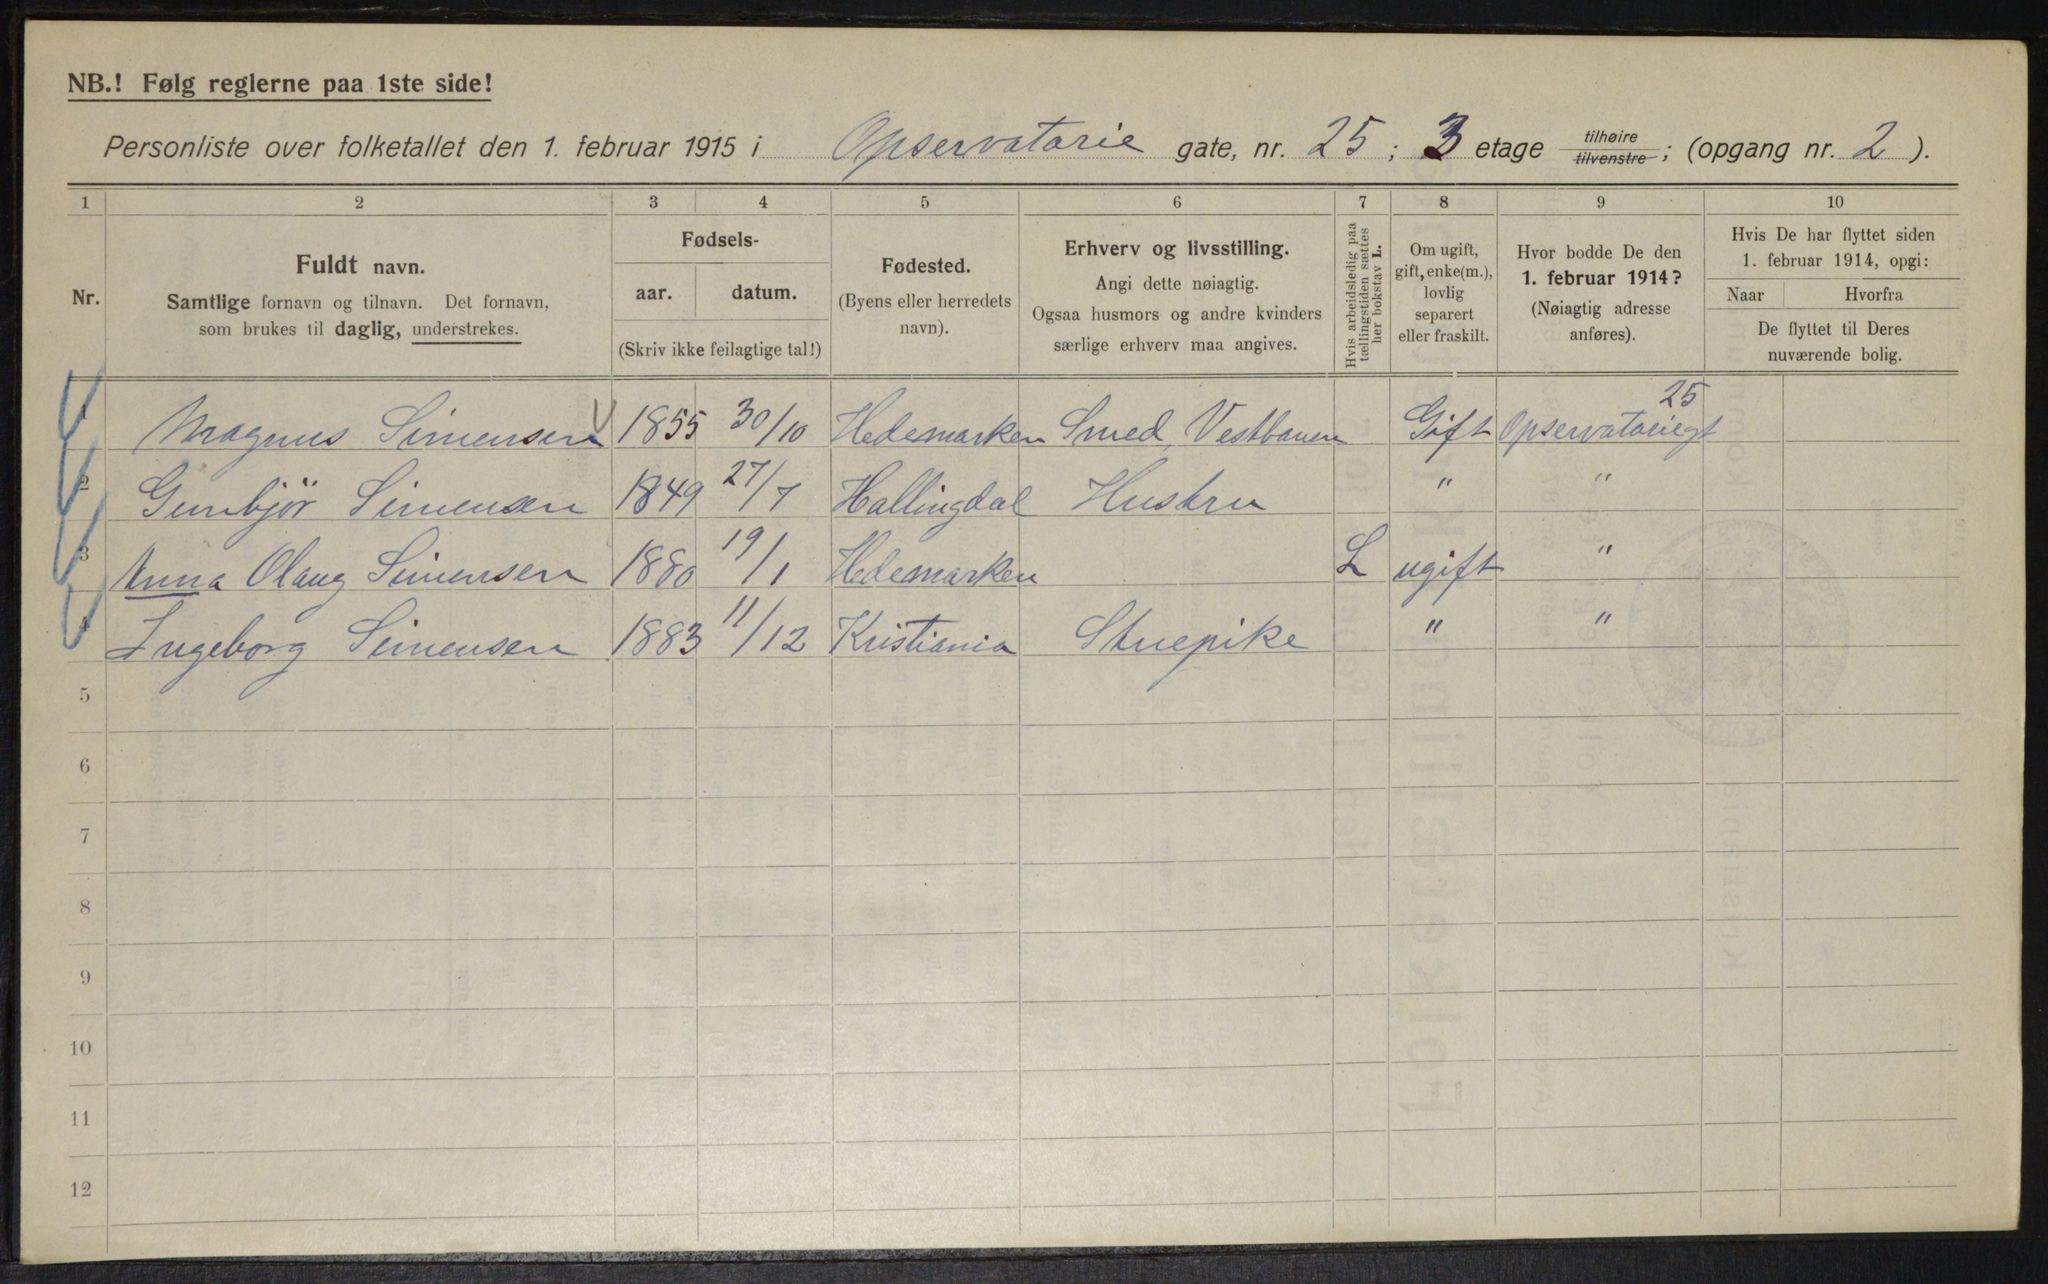 NB.! Følg reglerne paa 1ste side!
Personliste over folketallet den 1. februar 1915 i Opservatorie gate, nr. 25 ; 3 etage tilhøire tilvenstre ; (opgang nr. 2 ).
1 2 3 4 5 6 7 8 9 10
Nr.
Fuldt navn.
Samtlige fornavn og tilnavn. Det fornavn,
som brukes til daglig, understrekes.
Fødsels-
aar. datum.
(Skriv ikke feilagtige tal!)
Fødested.
(Byens eller herredets
navn).
Erhverv og livsstilling.
Angi dette nøiagtig.
Ogsaa husmors og andre kvinders
særlige erhverv maa angives.
Hvis arbeidsledig paa
tællingstiden sættes
her bokstav L.
Om ugift,
gift, enke(m.),
lovlig
separert
eller fraskilt.
Hvor bodde De den
1. februar 1914?
(Nøiagtig adresse
anføres).
Hvis De har flyttet siden
1. februar 1914, opgi:
Naar Hvorfra
De flyttet til Deres
nuværende bolig.
1 Magnus Simensen 1855 30/10 Hedemarken Smed, Vestbanen Gift Opservatoriegt 25
2 Gunbjör Simensen 1849 27/7 Hallingdal Hustru " "
3 Anna Olaug Simensen 1880 19/1 Hedemarken L ugift "
4 Ingeborg Simensen 1883 11/12 Kristiania Stuepike " "
5
6
7
8
9
10
11
12